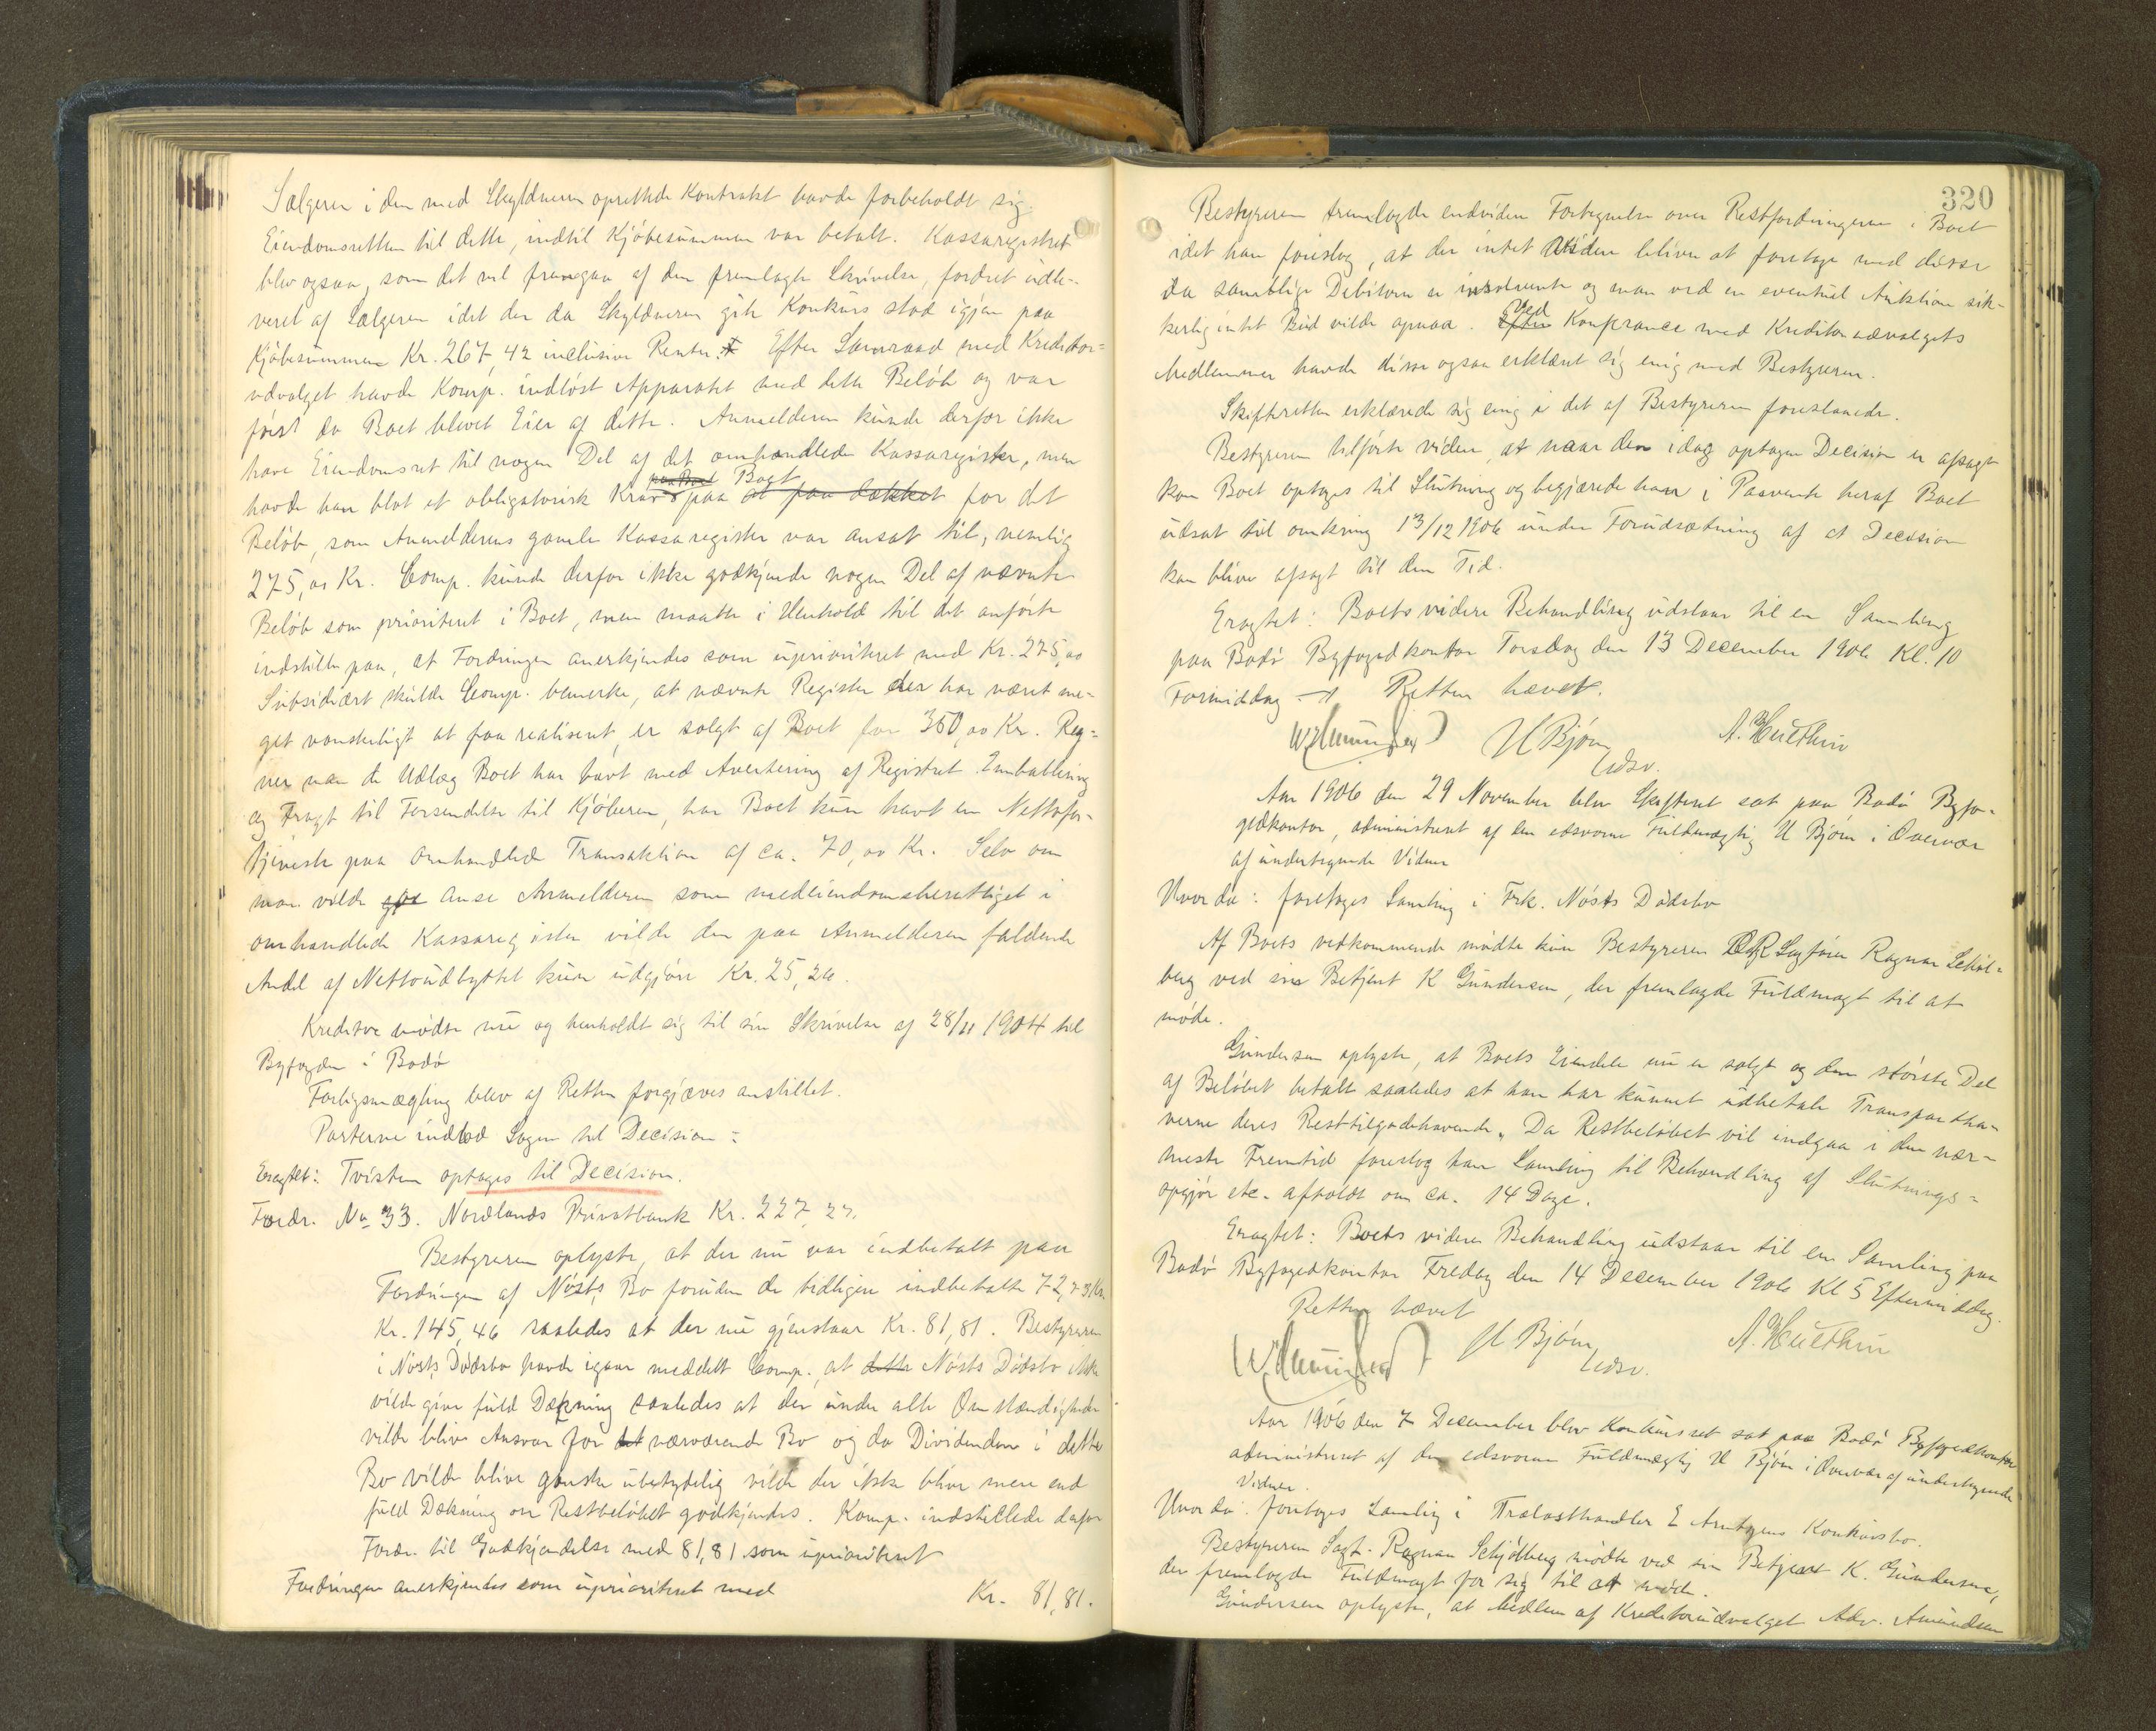 Sælgeren i den med Skyldneren oprettede Kontrakt havde forbeholdt sig
Eiendomsretten til dette, indtil Kjøbesummen var betalt. Kassaregistret
blev ogsaa, som det vil fremgaa af den fremlagte Skrivelse, fordret udle-
veret af Sælgeren idet der da Skyldneren gik Konkurs stod igjen paa
Kjøbesummen Kr. 267,42 inclusive Renter. Efter Samraad med Kreditor-
udvalget havde Komp. indløst Apparatet med dette Beløb og var
først da Boet blevet Eier af dette. Anmelderen kunde derfor ikke
have Eiendomsret til nogen Del af det omhandlede Kassaregister, men
havde han blot et obligatorisk Krav paa Boet for det
Beløb, som Anmelderens gamle Kassaregister var ansat til, nemlig
275,00 Kr. Comp. kunde derfor ikke godkjende nogen Del af nævnte
Beløb som prioriteret i Boet, men maatte i Henhold til det anførte
indstille paa, at Fordringen anerkjendes som uprioriteret med Kr. 275,00
Subsidiært skulde Comp. bemerke, at nævnte Register der har været me-
get vanskeligt at faa realiseret, er solgt af Boet for 350,00 Kr. Reg-
ner man de Udlæg Boet har havt med Avertering af Registret Emballering
og Fragt til Forsendelse til Kjøberen, har Boet kun havt en Nettofor-
tjeneste paa omhandlede Transaktion af ca. 70,00 Kr. Selv om
man vilde anse Anmelderen som medeiendomsberettiget i
omhandlede Kassaregister vilde den paa Anmelderen faldende
Andel af Nettoudbyttet kun udgjøre Kr. 25,20.
Kreditor mødte nu og henholdt sig til sin Skrivelse af 28/11 1904 til
Byfogden i Bodø
Forligsmægling blev af Retten forgjæves anstillet.
Parterne indlod Sagen til Decision:
Eragtet: Tvisten optages til Decision.
Fordr. No 33. Nordlands Privatbank Kr. 227,27.
Bestyreren oplyste, at der nu var indbetalt paa
Fordringen af Nøsts Bo foruden de tidligere indbetalte 72,73 Kr.
Kr. 145,46 saaledes at der nu gjenstaar Kr. 81,81. Bestyreren
i Nøsts Dødsbo havde igaar meddelt Comp., at dette Nøsts Dødsbo ikke
vilde give fuld Dækning saaledes at der under alle Omstændigheder
vilde blive Ansvar for nærværende Bo og da Dividenden i dette
Bo vilde blive ganske ubetydelig vilde der ikke blive mere end
fuld Dækning om Restbeløbet godkjendes. Komp. indstillede derfor
Fordr. til Godkjendelse med 81,81 som uprioriteret
Fordringen anerkjendes som uprioriteret med Kr. 81,81.
320
Bestyreren fremlagde endvidere Fortegnelse over Restfordringerne i Boet
idet han foreslog, at der intet videre bliver at foretage med disse
da samtlige Debitorer er insolvente og man ved en eventuel Auktion sik-
kerlig intet Bud vilde opnaa. Ved Konferance med Kreditorudvalgets
Medlemmer havde disse ogsaa erklæret sig enig med Bestyreren.
Skifteretten erklærede sig enig i det af Bestyreren foreslaaede.
Bestyreren tilførte videre, at naar den idag optagne Decision er afsagt
kan Boet optages til Slutning og begjærede han i Paavente heraf Boet
udsat til omkring 13/12 1906 under Forudsætning af at Decision
kan blive afsagt til den Tid.
Eragtet: Boets videre Behandling udstaar til en Samling
paa Bodø Byfogedkontor Torsdag den 13 December 1906 Kl. 10
Formiddag Retten hævet.
H Bjørn A. Hulthin
edsv.
Aar 1906 den 29 November blev Skifteret sat paa Bodø Byfo-
gedkontor, administreret af den edsvorne Fuldmægtig H Bjørn i Overvær
af undertegnede Vidner
Hvorda: foretages Samling i Frk. Nøsts Dødsbo
Af Boets vedkommende mødte kun Bestyreren Sagfører Ragnar Schjøl-
berg ved sin Betjent K Gundersen, der fremlagde Fuldmagt til at
møde.
Gundersen oplyste, at Boets Eiendele nu er solgt og den største Del
af Beløbet betalt saaledes at han har kunnet udbetale Transportha-
verne deres Resttilgodehavende. Da Restbeløbet vil indgaa i den nær-
meste Fremtid foreslog han Samling til Behandling af Slutnings-
opgjør etc. afholdt om ca. 14 Dage.
Eragtet: Boets videre Behandling udstaar til en Samling paa
Bodø Byfogedkontor Fredag den 14 December 1906 Kl 5 Eftermiddag.
Retten hævet
H Bjørn A. Hulthin
edsv.
Aar 1906 den 7 December blev Konkursret sat paa Bodø Byfogedkontor
administreret af den edsvorne Fuldmægtig H Bjørn i Overvær af undertegnede
Vidner.
Hvorda: foretoges Samling i Trælasthandler E Arntzens Konkursbo.
Bestyreren Sagf. Ragnar Schjølberg mødte ved sin Betjent K. Gundersen,
der fremlagde Fuldmagt for sig til at møde.
Gundersen oplyste, at Medlem af Kreditorudvalget Adv. Amundsen